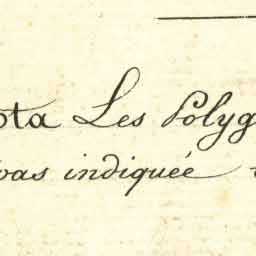 ota Les Polyg
pas indiquée